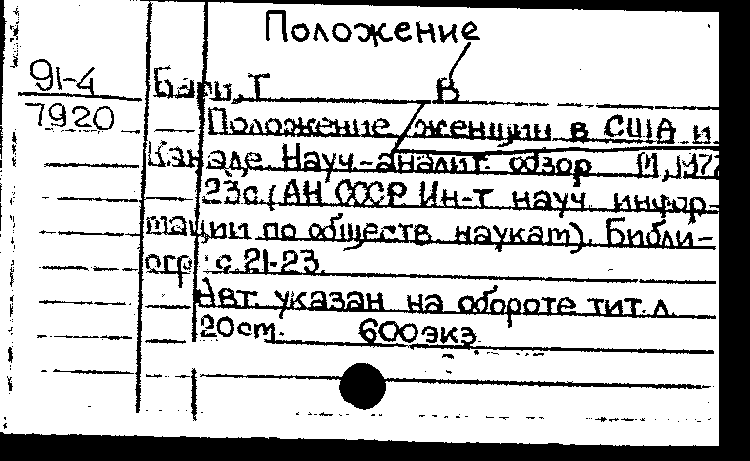 Положение
91-4
7920
Бари, Т В
Положение женщин в США и
Канаде. Науч.-аналит. обзор М, 1972
23с. (АН СССР Ин-т науч. инфор-
мации по обществ. наукам). Библи-
огр: с 21-23.
Авт. указан на обороте тит. л.
20см. 600экз.